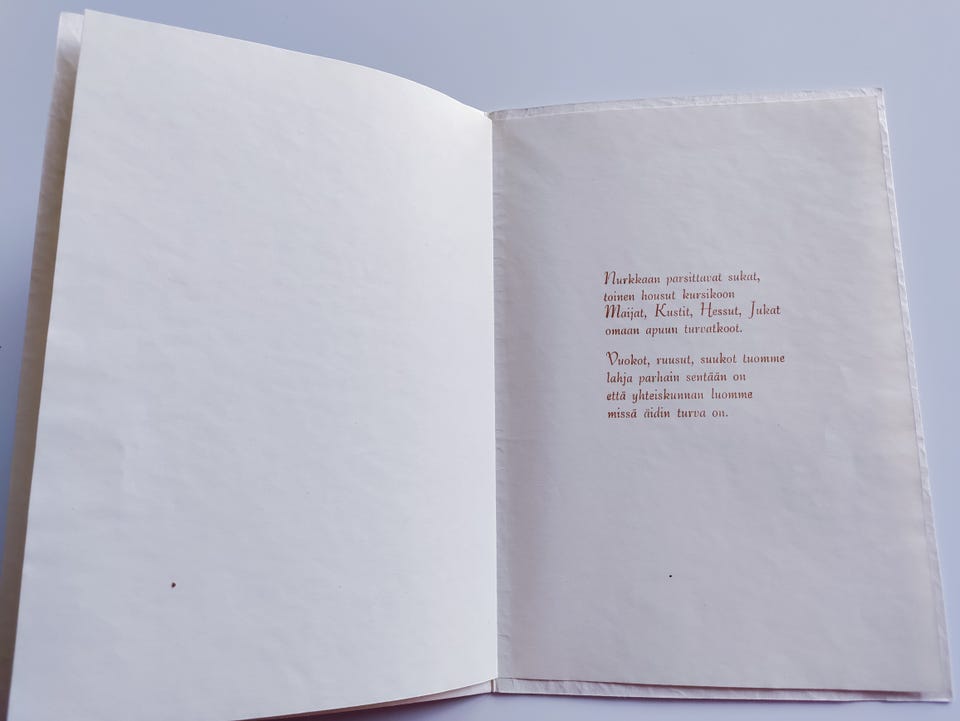 Nurkkaan parsittavat sukat,
toinen housut kursikoon
Maijat, Kustit, Hessut, Jukat
omaan apuun turvatkoot.
Vuokot, ruusut, suukot tuomme
lahja parhain sentään on
että yhteiskunnan luomme
missä äidin turva on.